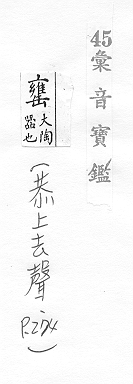 45彙音寶鑑
甕大陶器也
(恭上去聲
P.274)